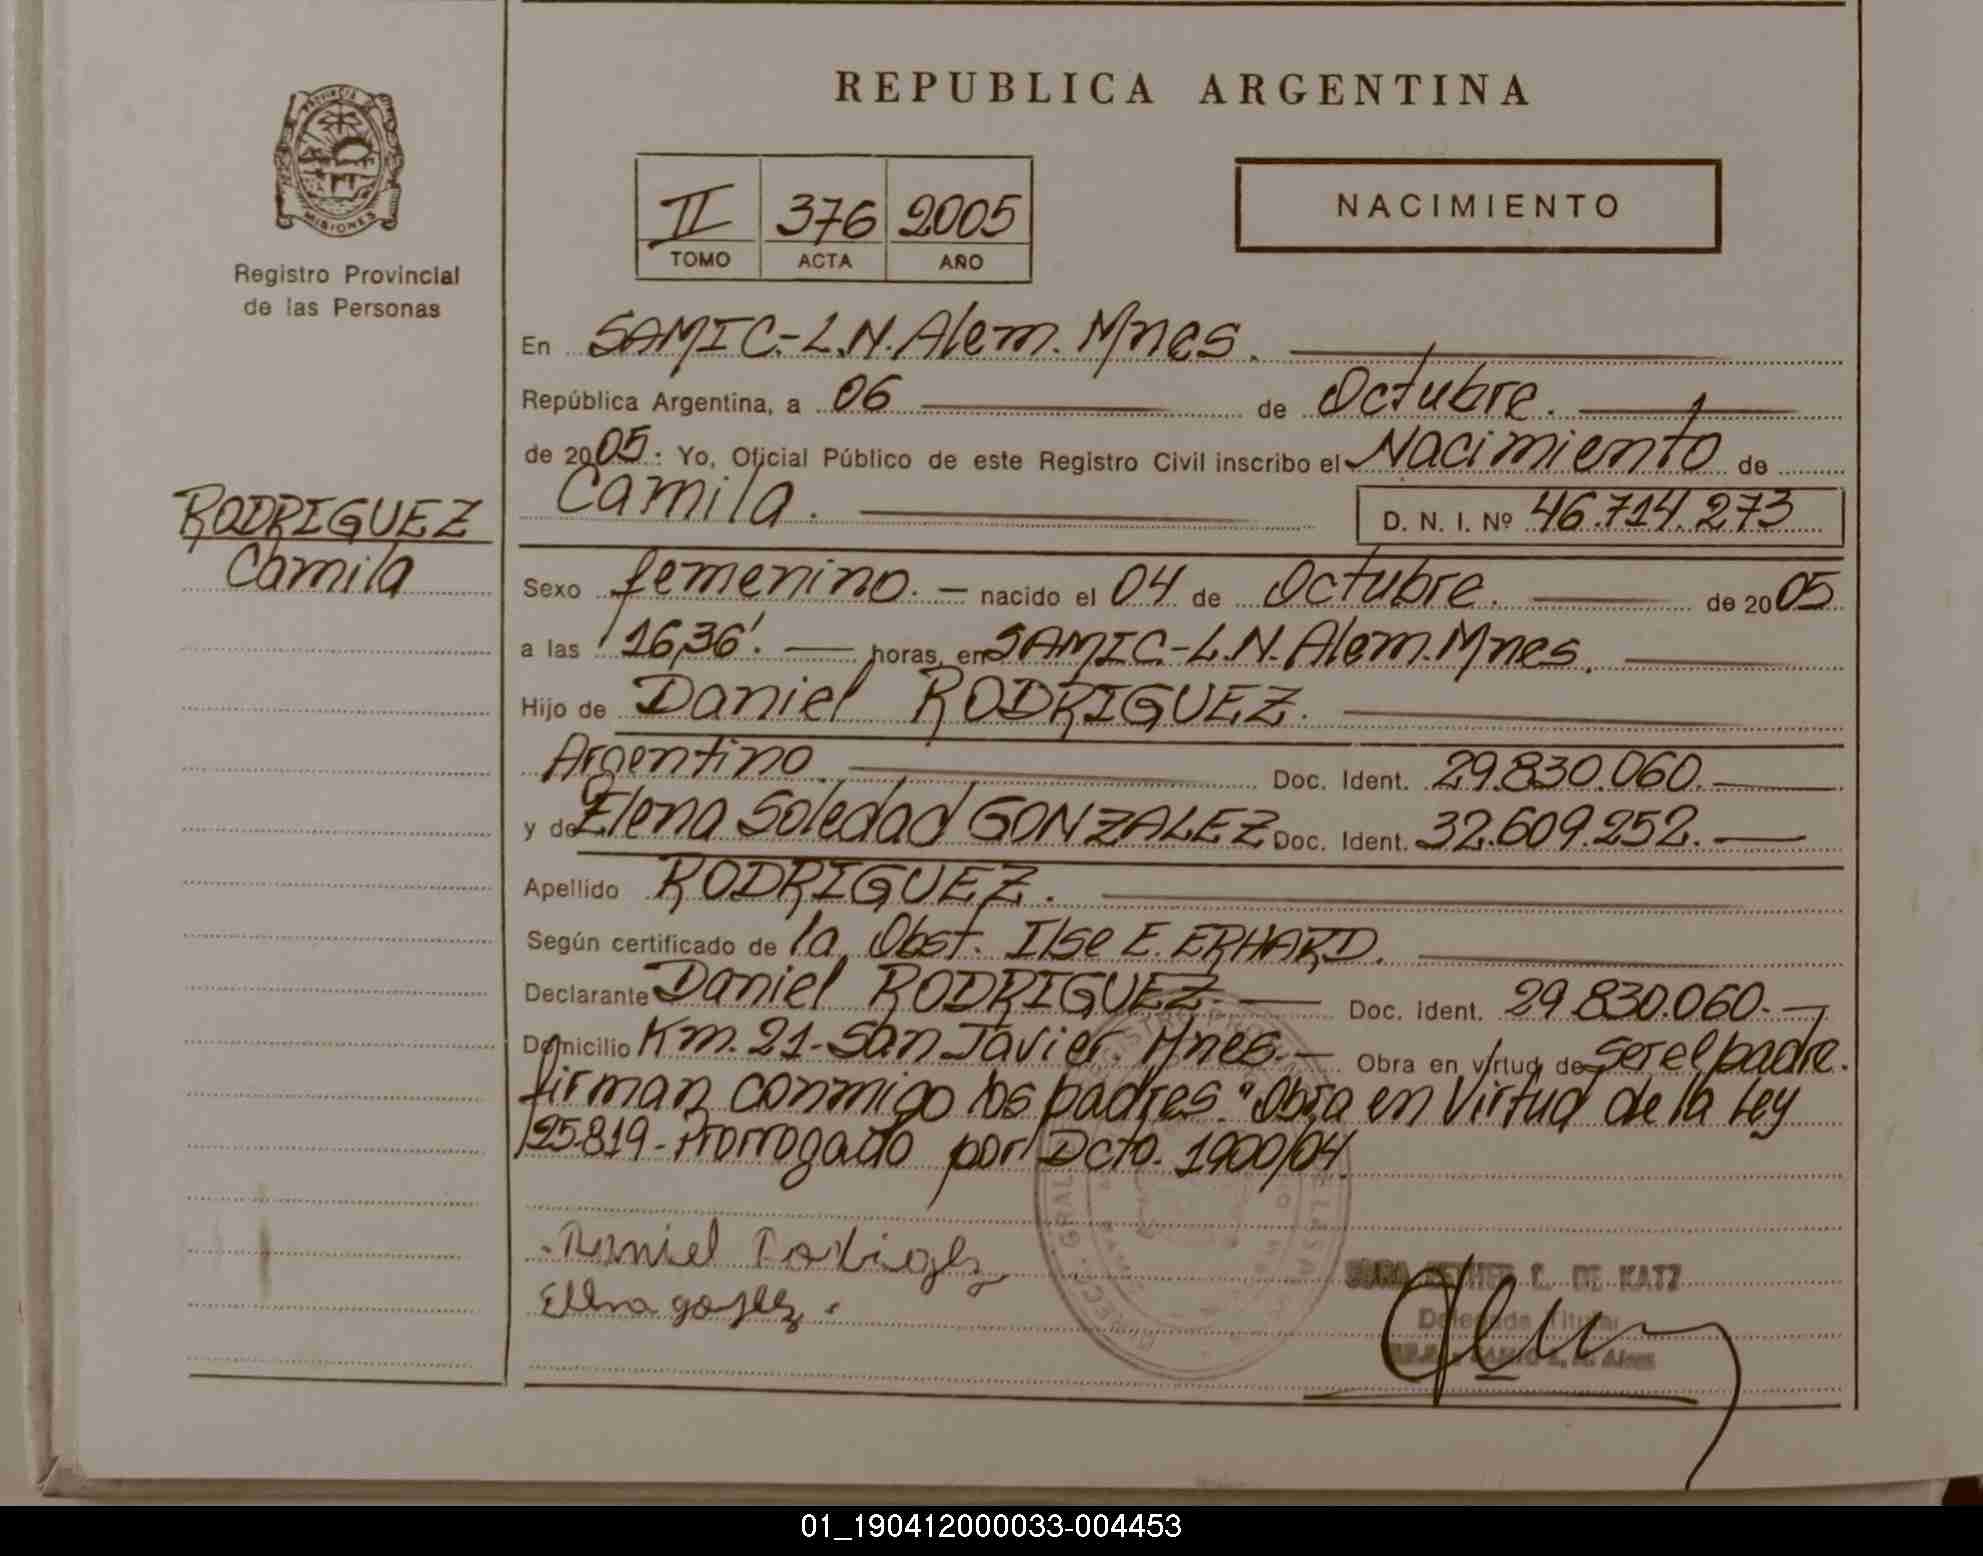 REPUBLICA ARGENTINA
PROVINCIA DE
MISIONES
Registro Provincial
de las Personas
II 376 2005
TOMO ACTA AÑO
NACIMIENTO
En SAMIC.-L.N.Alem. Mnes.
República Argentina, a 06 de Octubre.
de 2005. Yo, Oficial Público de este Registro Civil inscribo el Nacimiento de
Camila. D. N. I. Nº 46.714.273
RODRIGUEZ
Camila
Sexo femenino. nacido el 04 de Octubre. de 2005
a las 16,36'. horas, en SAMIC.-L.N. Alem. Mnes.
Hijo de Daniel RODRIGUEZ.
Argentino Doc. Ident. 29.830.060.
y de Elena Soledad GONZALEZ Doc. Ident. 32.609.252.
Apellido RODRIGUEZ.
Según certificado de la Obst. Ilse E. ERHARD.
Declarante Daniel RODRIGUEZ. Doc. Ident. 29.830.060.
Domicilio Km. 21-San Javier. Mnes. Obra en virtud de ser el padre.
firman conmigo los padres. "Obra en Virtud de la Ley
25.819-Prorrogado por Dcto. 1900/04
Daniel
Elena
C. DE KATZ
Delegada Titular
01_190412000033-004453